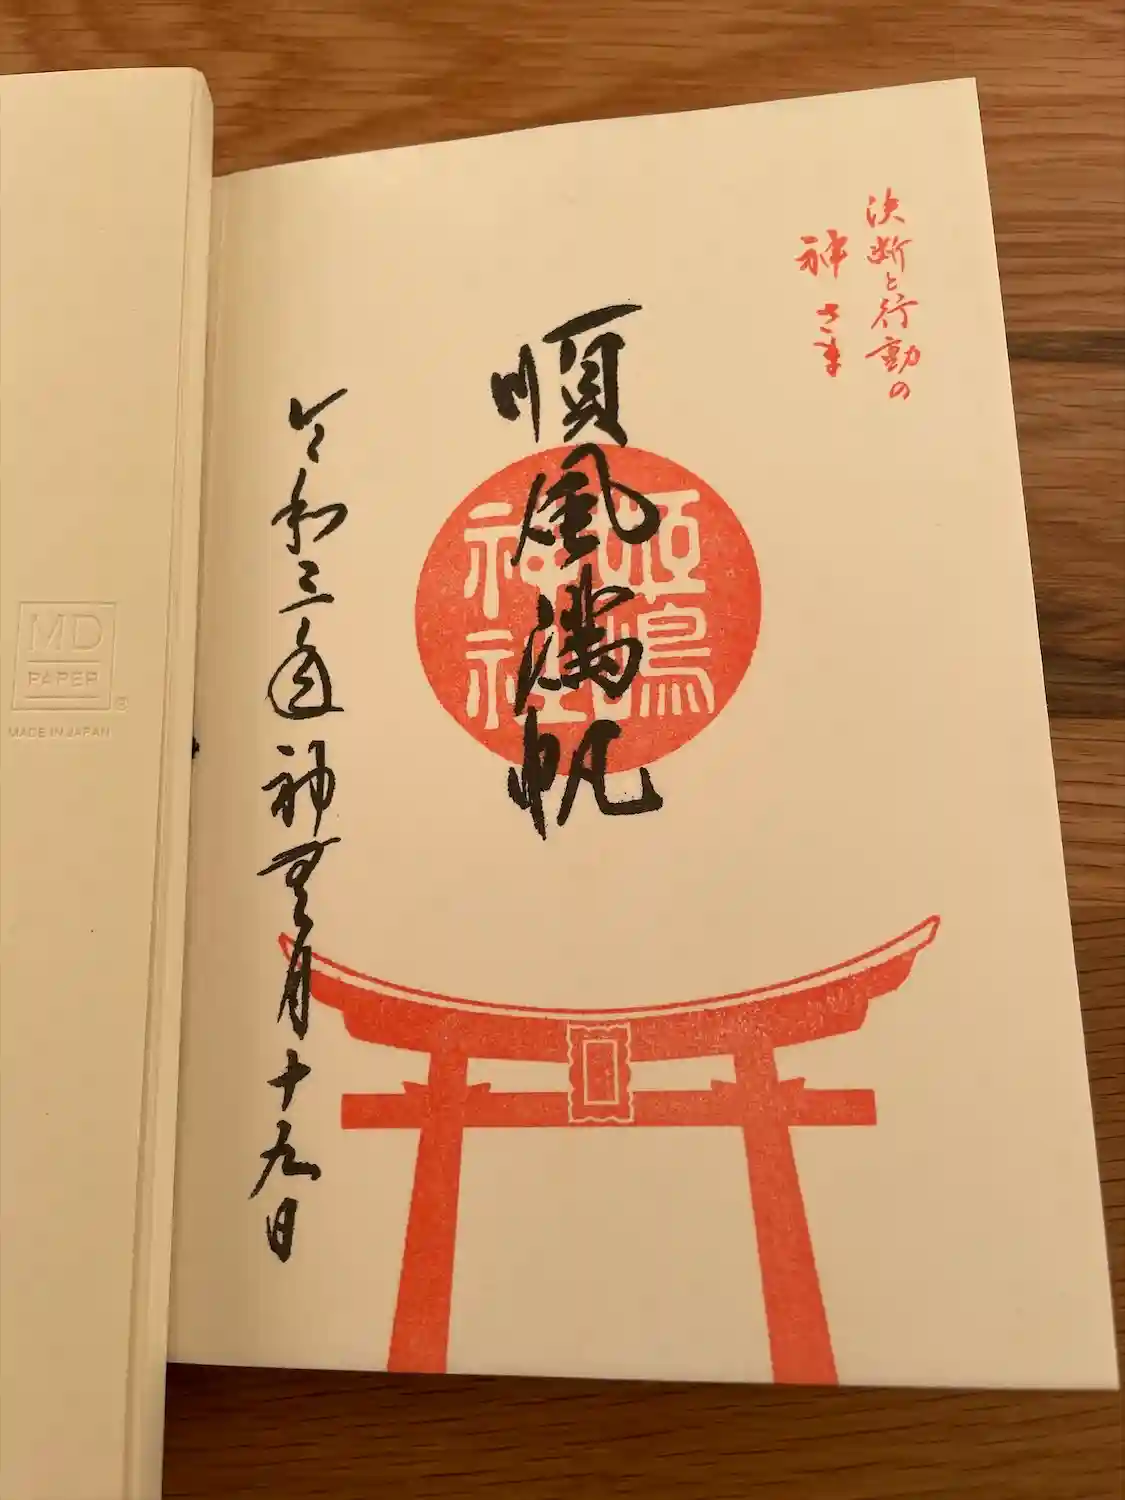 決断と行動の
神さま
順風満帆
姫嶋
神社
令和三年神無月十九日
MD
PAPER
®
MADE IN JAPAN